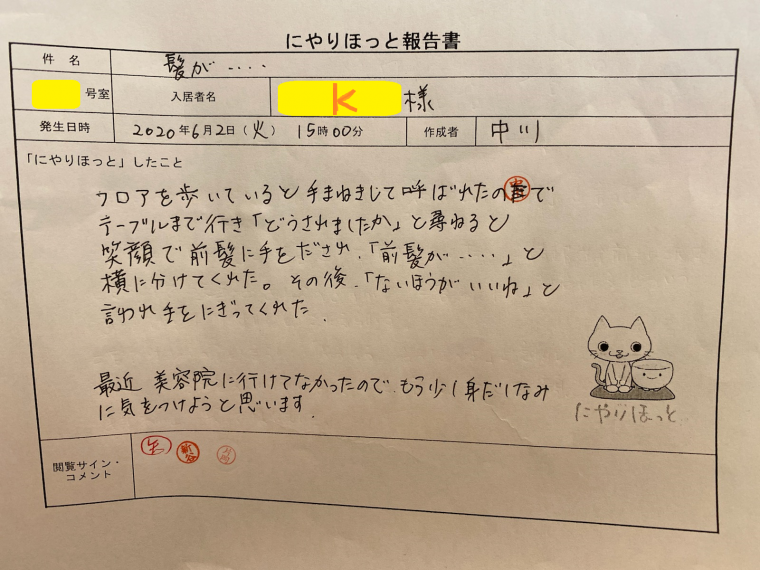 にやりほっと報告書
件 名 髪が‥‥
号室 入居者名 K 様
発生日時 2020年6月2日(火) 15時00分 作成者 中川
「にやりほっと」したこと
フロアを歩いていると手まねきして呼ばれたので
テーブルまで行き「どうされましたか」と尋ねると
笑顔で前髪に手をだされ、「前髪が‥‥」と
横に分けてくれた。その後、「ないほうがいいね」と
言われ手をにぎってくれた.
最近 美容院に行けてなかったので、もう少し身だしなみ
に気をつけようと思います.
にやりほっと
閲覧サイン・
コメント